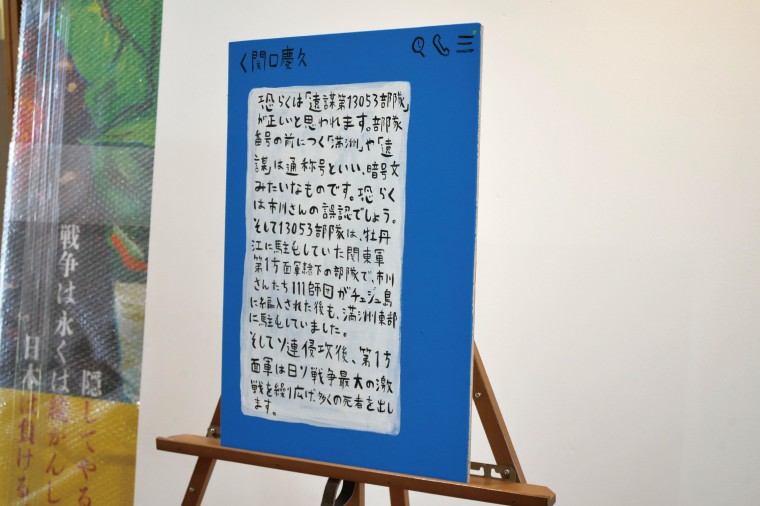 く関口慶久
恐らくは「遠謀第13053部隊」
が正しいと思われます。部隊
番号の前につく「満洲」や「遠
謀」は通称号といい、暗号文
みたいなものです。恐らく
は市川さんの誤認でしょう。
そして13053部隊は、牡丹
江に駐屯していた関東軍
第1方面軍隷下の部隊で、市川
さんたち111師団がチェジュ島
に編入された後も、満洲東部
に駐屯していました。
そしてソ連侵攻後、第1方
面軍は日ソ戦争最大の激
戦を繰り広げ、多くの死者を出し
ます。
隠してやる
戦争は永くは続かんし
日本は負ける